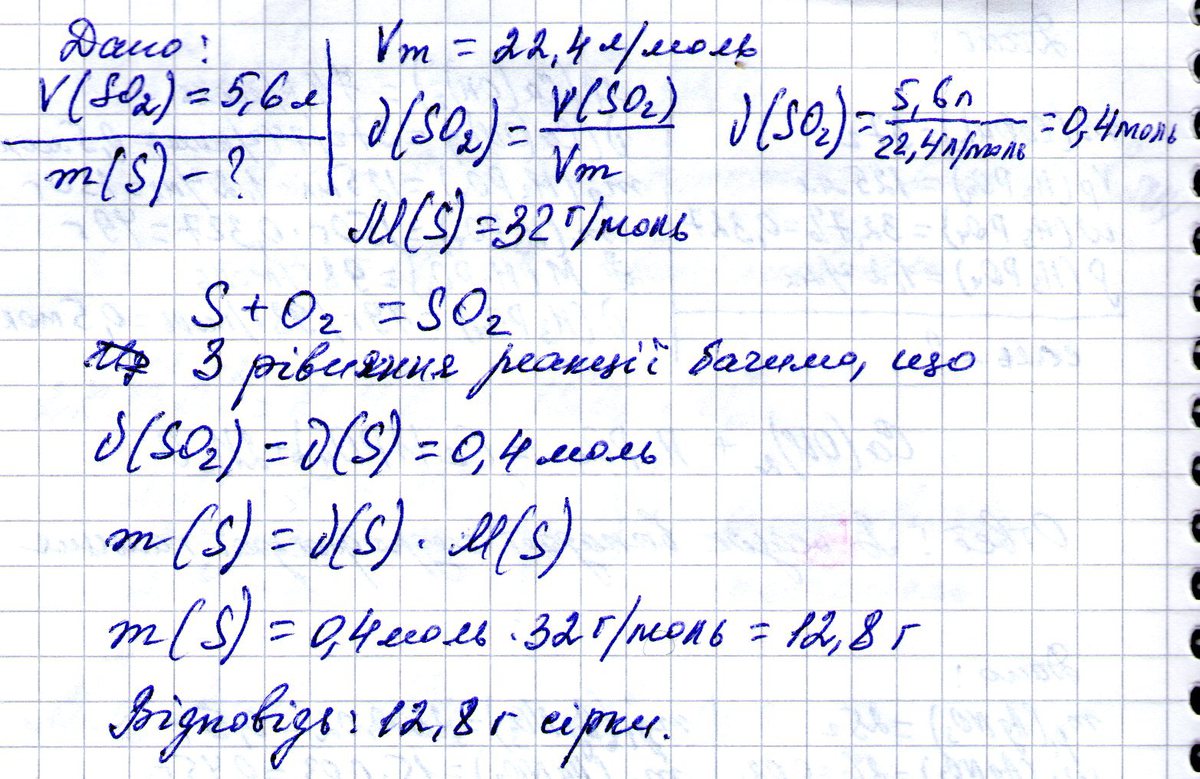 Дано:
V(SO₂) = 5,6 л
m(S) – ?
Vm = 22,4 л/моль
ν(SO₂) = V(SO₂)/Vm ν(SO₂) = 5,6 л/22,4 л/моль = 0,4 моль
M(S) = 32 г/моль
S + O₂ = SO₂
З рівняння реакції бачимо, що
ν(SO₂) = ν(S) = 0,4 моль
m(S) = ν(S) · M(S)
m(S) = 0,4 моль · 32 г/моль = 12,8 г
Відповідь: 12,8 г сірки.